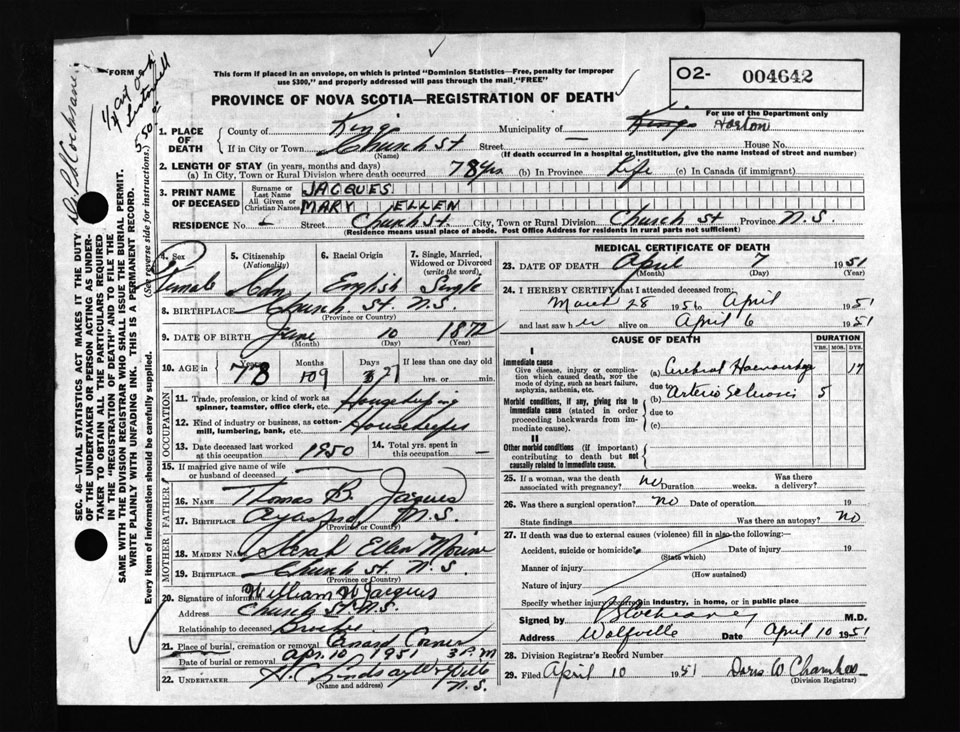 FORM
This form if placed in an envelope, on which is printed "Dominion Statistics—Free, penalty for improper
use $300," and properly addressed will pass through the mail, "FREE"
02- 004642
For use of the Department only
PROVINCE OF NOVA SCOTIA—REGISTRATION OF DEATH
1. PLACE OF DEATH
County of Kings
Municipality of — Kings Horton
If in City or Town Church St (Name) Street House No.
(If death occurred in a hospital or institution, give the name instead of street and number)
2. LENGTH OF STAY (in years, months and days)
(a) In City, Town or Rural Division where death occurred 78 yrs (b) In Province Life (c) In Canada (if immigrant)
3. PRINT NAME OF DECEASED
Surname or Last Name JACQUES
All Given or Christian Names MARY ELLEN
RESIDENCE No. - Street Church St. City, Town or Rural Division Church St Province N.S.
(Residence means usual place of abode. Post Office Address for residents in rural parts not sufficient)
4. Sex Female
5. Citizenship (Nationality) Cdn
6. Racial Origin English
7. Single, Married, Widowed or Divorced (write the word) Single
8. BIRTHPLACE Church St. N.S.
(Province or Country)
9. DATE OF BIRTH June 10 1872
(Month) (Day) (Year)
10. AGE in Years 78 Months 9 Days 27 If less than one day old hrs. or min.
OCCUPATION
11. Trade, profession, or kind of work as spinner, teamster, office clerk, etc. Housekeeping
12. Kind of industry or business, as cotton-mill, lumbering, bank, etc.
13. Date deceased last worked at this occupation 1950
14. Total yrs. spent in this occupation —
15. If married give name of wife or husband of deceased —
FATHER
16. NAME Thomas B. Jacques
17. BIRTHPLACE N.S.
(Province or Country)
MOTHER
18. MAIDEN NAME Sarah Ellen
19. BIRTHPLACE Church St. N.S.
(Province or Country)
20. Signature of informant William W Jacques
Address Church St. N.S.
Relationship to deceased Brother
21. Place of burial, cremation or removal Canard Corner
Date of burial or removal Apr. 10 1951 3 P.M
22. UNDERTAKER H.C. Lindsay Wolfville N.S.
(Name and address)
MEDICAL CERTIFICATE OF DEATH
23. DATE OF DEATH April 7 1951
(Month) (Day) (Year)
24. I HEREBY CERTIFY that I attended deceased from:
March 28 1951 to April 1951
and last saw her alive on April 6 1951
CAUSE OF DEATH DURATION
YRS. MOS. DYS.
I
Immediate cause
Give disease, injury or complication which caused death, NOT the mode of dying, such as heart failure, asphyxia, asthenia, etc.
(a) Cerebral Haemorrhage 17
due to
Morbid conditions, if any, giving rise to immediate cause (stated in order proceeding backwards from immediate cause).
(b) Arterio Sclerosis 5
due to
(c)
II
Other morbid conditions (if important) contributing to death but not causally related to immediate cause.
25. If a woman, was the death associated with pregnancy? no Duration weeks. Was there a delivery?
26. Was there a surgical operation? no Date of operation 19
State findings Was there an autopsy? no
27. If death was due to external causes (violence) fill in also the following:—
Accident, suicide or homicide? Date of injury 19
(State which)
Manner of injury
(How sustained)
Nature of injury
Specify whether injury occurred in industry, in home, or in public place
Signed by M.D.
Address Wolfville Date April 10 1951
28. Division Registrar's Record Number
29. Filed April 10 1951 Doris W
(Division Registrar)
SEC. 46—VITAL STATISTICS ACT MAKES IT THE DUTY
OF THE UNDERTAKER OR PERSON ACTING AS UNDER-
TAKER TO OBTAIN ALL THE PARTICULARS REQUIRED
IN THE "REGISTRATION OF DEATH" AND TO FILE THE
SAME WITH THE DIVISION REGISTRAR WHO SHALL ISSUE THE BURIAL PERMIT.
WRITE PLAINLY WITH UNFADING INK. THIS IS A PERMANENT RECORD.
Every item of information should be carefully supplied. (See reverse side for instructions.)
Cochrane